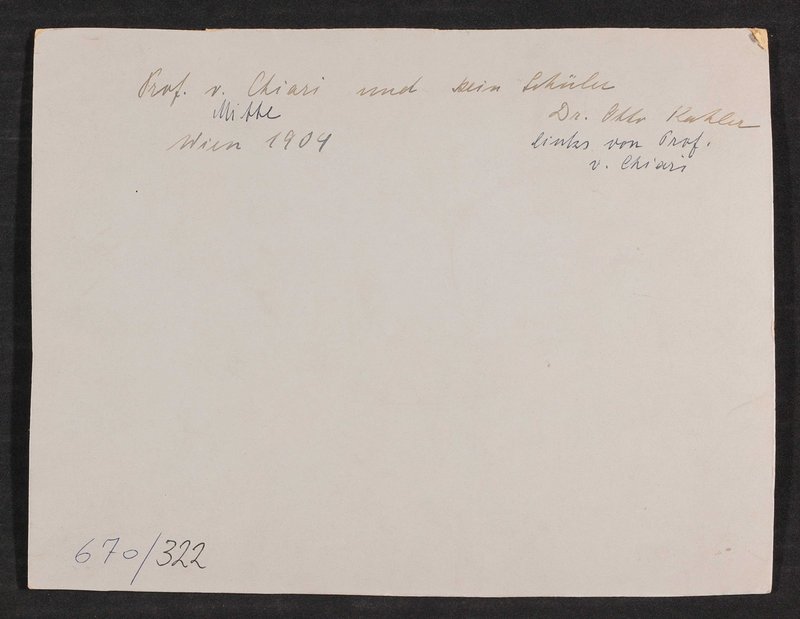 Prof. v. Chiari und sein Schüler
Mitte
Dr. Otto Kahler
Wien 1904
links von Prof.
v. Chiari
670/322